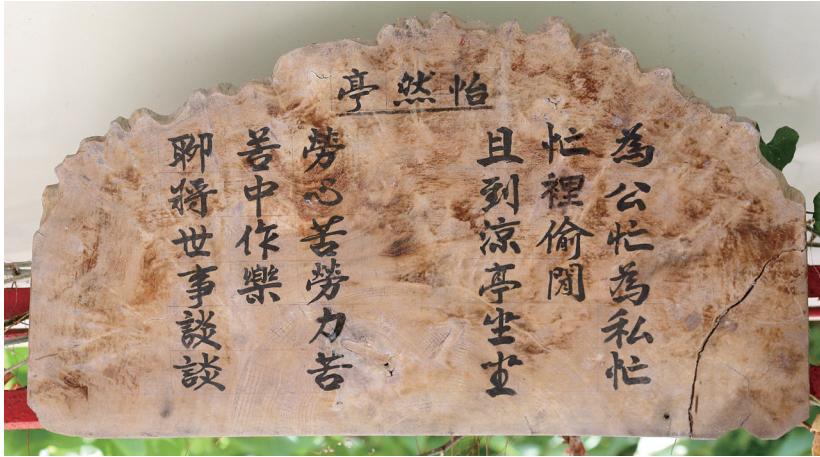 怡然亭
為公忙為私忙
忙裡偷閒
且到涼亭坐坐
勞心苦勞力苦
苦中作樂
聊將世事談談